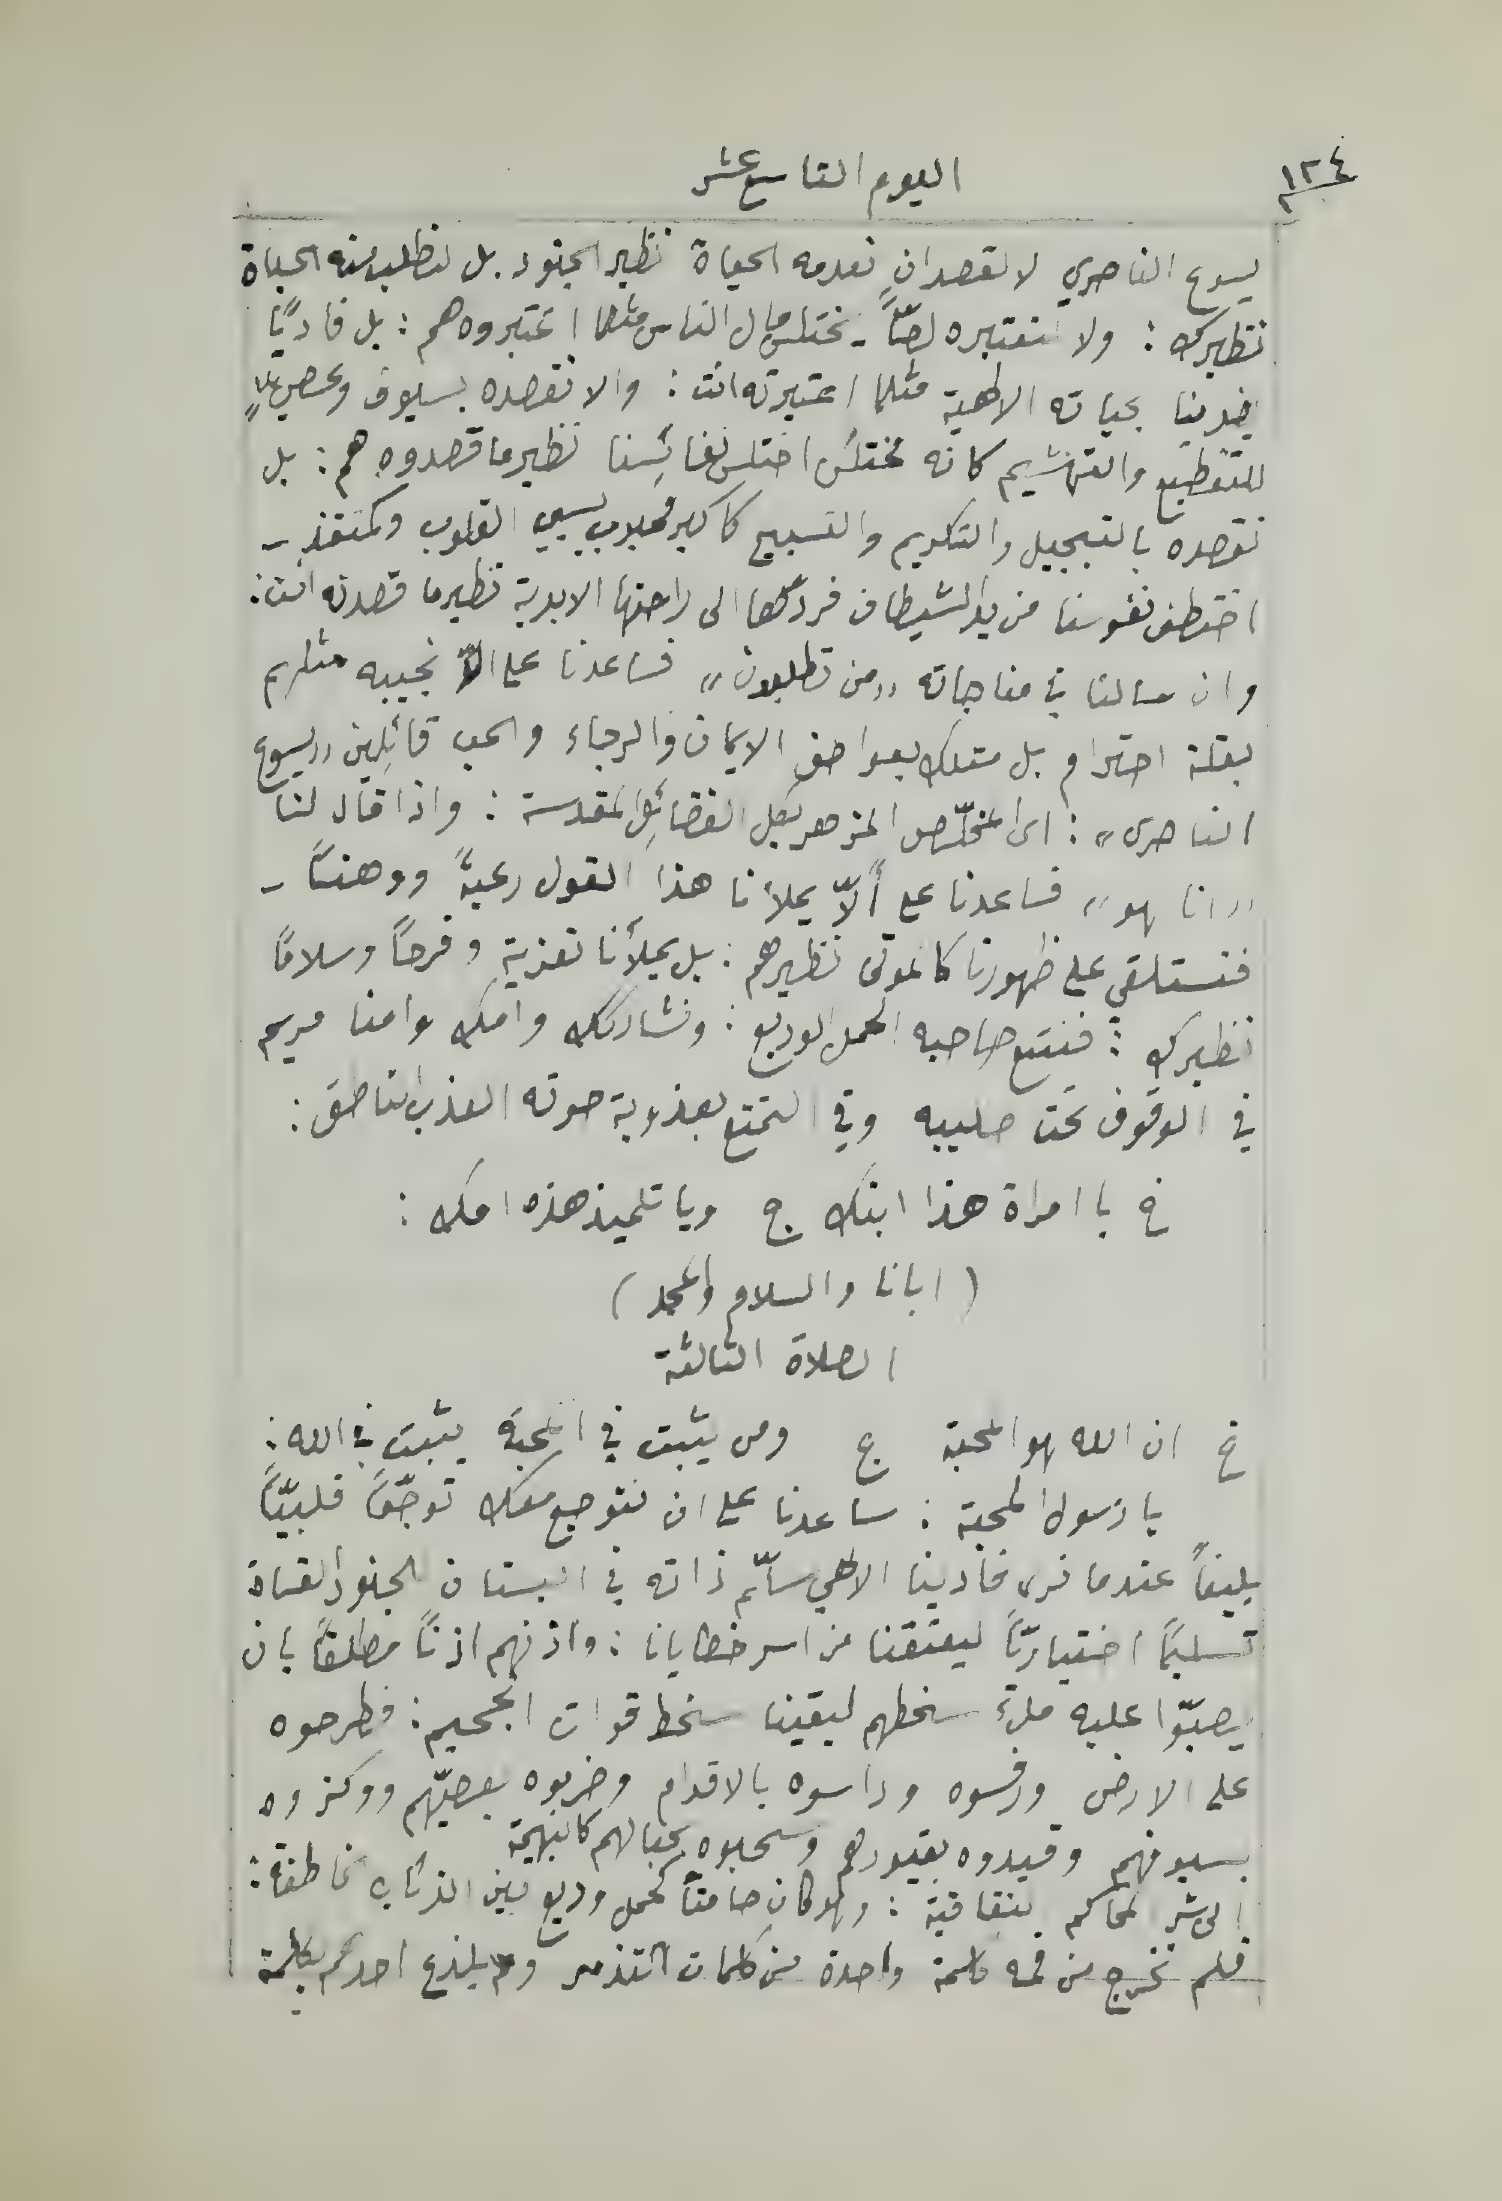 ١٢٤
اليوم التاسع عشر
يسوع الناصري لا لقصد ان نعدمه الحياة نظير الجنود بل لنطلب منه الحياة
نظيرك : ولا لنعتبره لصّاً يختلس مال الناس مثلما اعتبروه هم : بل فاديًا
يفدينا بحياته الالهية مثلما اعتبرته انت : والا نقصده بسيوف وعصي
للتقطيع والتهشيم كانه مختلس اختلس نفائسنا نظير ما قصدوه هم : بل
نقصده بالتبجيل والتكريم والتسبيح كاكبر محبوب يسبي القلوب وكمنقذ
اختطف نفوسنا من يد الشيطان فردّها الى راحتها الابدية نظير ما قصدته انت :
وان سالنا في مناجاته ,,من تطلبون,, فساعدنا على الّا نجيبه مثلهم
بقلة احترام بل مثلك بعواطف الايمان والرجاء والحب قائلين ,,يسوع
الناصرى,, : اى المخلّص المزهر بكل الفضائل المقدسة : واذا قال لنا
,,انا هو,, فساعدنا على ألّا يملأنا هذا القول رعبةً ووهنًا
فنستلقي على ظهورنا كالموتى نظيرهم : بل يملأنا تعزيةً وفرحًا وسلامًا
نظيرك : فنتبع صاحبه الحمل الوديع : ونشاركك وامك وامنا مريم
في الوقوف تحت صليبه وفي التمتع بعذوبة صوته العذب الناطق :
خ يا امراة هذا ابنك ج ويا تلميذ هذه امك :
( ابانا والسلام والمجد )
الصلاة الثالثة
خ ان الله هو المحبة ج ومن يثبت في المحبة يثبت في الله :
يا رسول المحبة : ساعدنا على ان نتوجع معك توجّعًا قلبيًّا
بليغاً عندما نرى فادينا الالهي سلّم ذاته في البستان للجنود القساة
تسليمًا اختياريًّا ليعتقنا من اسر خطايانا : واذنهم اذنًا مطلقًا بان
يصبّوا عليه ملء سخطهم ليقينا سخط قوات الجحيم : فطرحوه
على الارض ورفسوه وداسوه بالاقدام وضربوه بعصيّهم ووكزوه
بسيوفهم وقيدوه بقيودهم وسحبوه بحبالهم كالبهيمة
الى شر المحاكم بنفاقية : وهو كان صامتًا كحمل وديع بين الذئاب الخاطفة :
فلم تخرج من فمه كلمة واحدة من كلمات التذمر ولم يلذع احدهم بكلمة